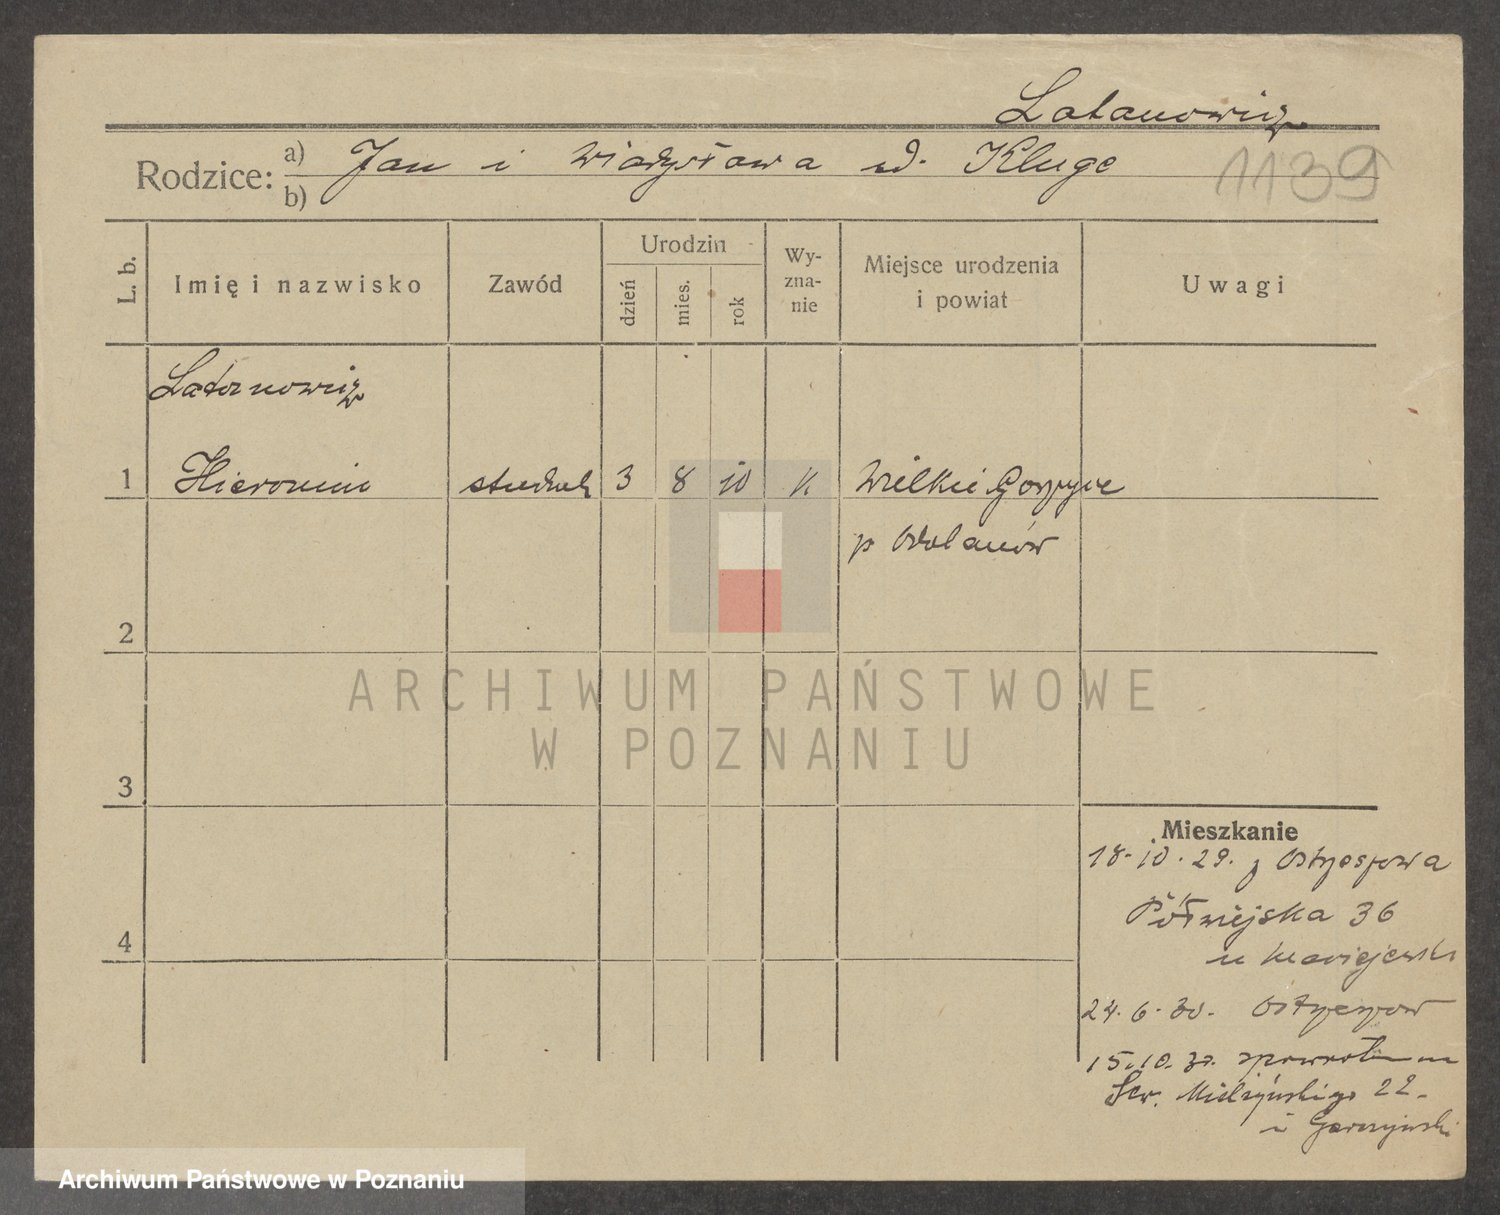 Latanowicz
Rodzice: a) Jan i Władysława ud. Kluge
b)
1139
L. b.
Imię i nazwisko
Zawód
Urodzin
dzień
mies.
rok
Wy-
zna-
nie
Miejsce urodzenia
i powiat
Uwagi
Latanowicz
1 Hieronim student 3 8 10 k Wielkie Gorzyce
p Odolanów
2
3
4
ARCHIWUM PAŃSTWOWE
W POZNANIU
Mieszkanie
18.10.29. z Ostrzeszowa
Półwiejska 36
u Maciejewski
24.6.30. Ostrzeszów
15.10.30. spowrotem
Sew. Mielżyńskiego 22.
u
Archiwum Państwowe w Poznaniu